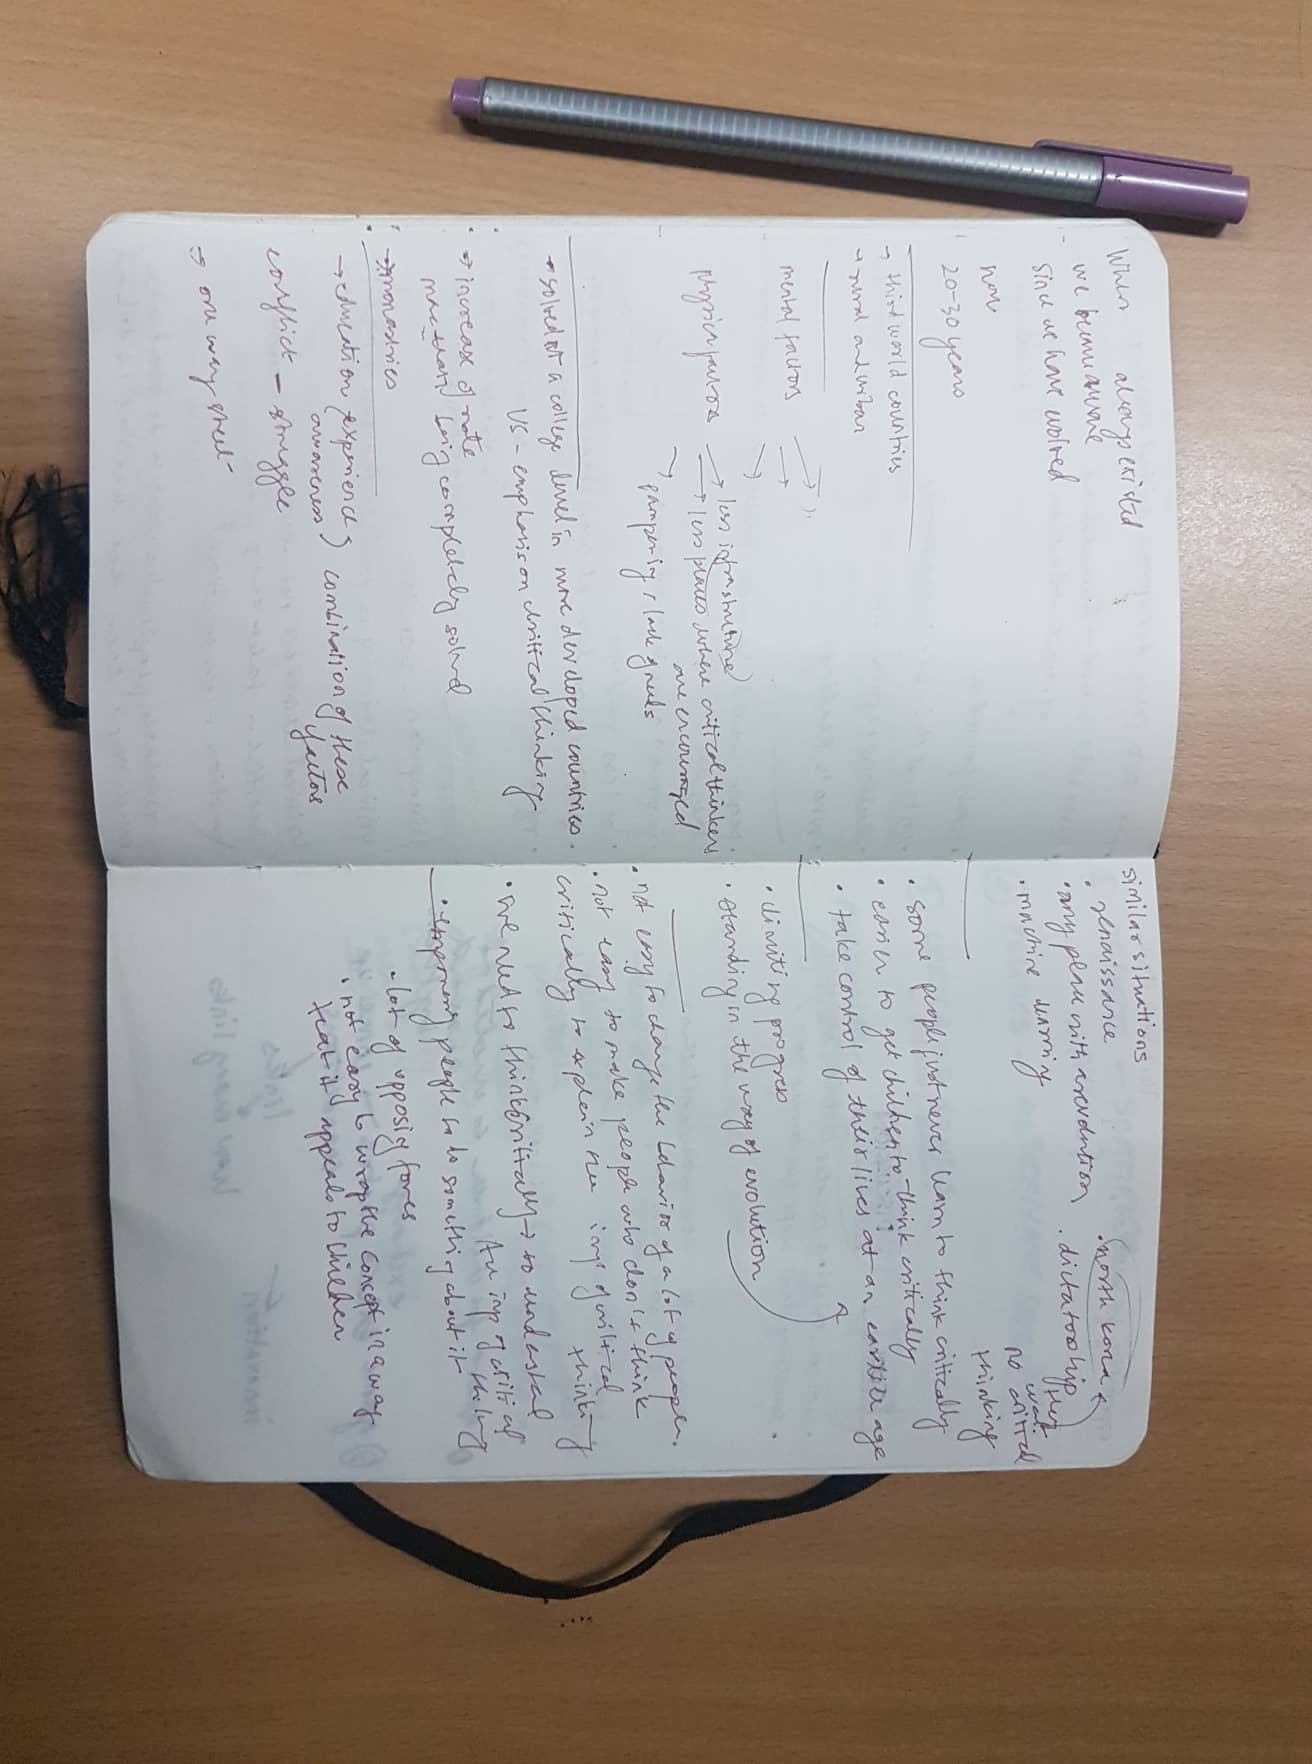 When always existed
we became aware
since we have evolved
now
20-30 years
→ third world countries
→ rural and urban
mental factors
physical factors
→ less infrastructure
→ less places where critical thinkers
are encouraged
→ pampering, lack of needs
→ solved at a college level in more developed countries.
VS - emphasis on critical thinking
→ increase of rate
more than being completely solved
→ monastries
→ education (experience, awareness) combination of these
factors
conflict - struggle
→ one way street
similar situations
· renaissance
· any place with revolution
· machine learning
· north korea
· dictatorship
they want
no critical
thinking
· some people just never learn to think critically
· easier to get children to think critically
· take control of their lives at an earlier age
· limiting progress
· standing in the way of evolution
· not easy to change the behavior of a lot of people.
· not easy to make people who don't think
critically to explain the imp of critical
thinking
· we need to think critically → to understand
the imp of critical
thinking
people to do something about it
· lot of opposing forces
· not easy to wrap the concept in a way
that it appeals to children